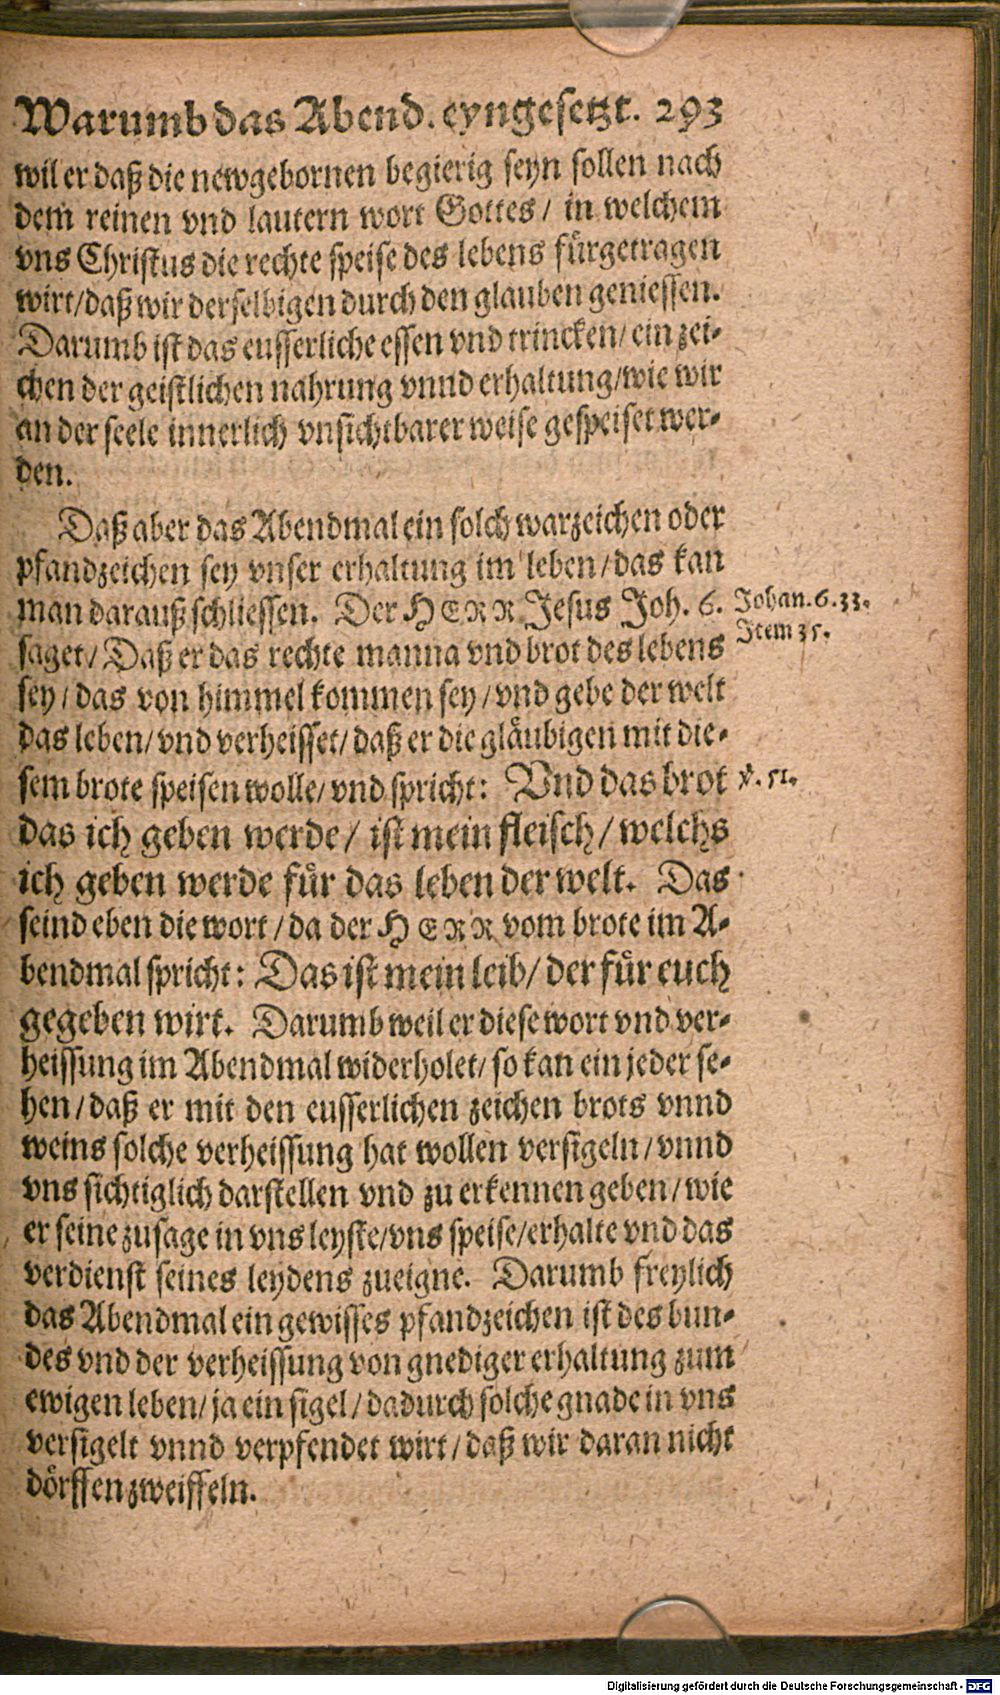 Warumb das Abend. eyngesetzt. 293
wil er daß die newgebornen begierig seyn sollen nach
dem reinen vnd lautern wort Gottes/ in welchem
vns Christus die rechte speise des lebens fürgetragen
wirt/daß wir derselbigen durch den glauben geniessen.
Darumb ist das eusserliche essen vnd trincken/ ein zei-
chen der geistlichen nahrung vnnd erhaltung/wie wir
an der seele innerlich vnsichtbarer weise gespeiset wer-
den.
Daß aber das Abendmal ein solch warzeichen oder
pfandzeichen sey vnser erhaltung im leben/das kan
man darauß schliessen. Der HERR Jesus Joh. 6.
Johan. 6. 33.
Item 35.
saget/ Daß er das rechte manna vnd brot des lebens
sey/das von himmel kommen sey/vnd gebe der welt
das leben/vnd verheisset/daß er die gläubigen mit die-
sem brote speisen wolle/vnd spricht: Vnd das brot
v. 51.
das ich geben werde/ ist mein fleisch/ welchs
ich geben werde für das leben der welt. Das
seind eben die wort/da der HERR vom brote im A-
bendmal spricht: Das ist mein leib/ der für euch
gegeben wirt. Darumb weil er diese wort vnd ver-
heissung im Abendmal widerholet/so kan ein jeder se-
hen/daß er mit den eusserlichen zeichen brots vnnd
weins solche verheissung hat wollen versigeln/vnnd
vns sichtiglich darstellen vnd zu erkennen geben/wie
er seine zusage in vns leyste/vns speise/erhalte vnd das
verdienst seines leydens zueigne. Darumb freylich
das Abendmal ein gewisses pfandzeichen ist des bun-
des vnd der verheissung von gnediger erhaltung zum
ewigen leben/ja ein sigel/dadurch solche gnade in vns
versigelt vnnd verpfendet wirt/daß wir daran nicht
dörffen zweiffeln.
Digitalisierung gefördert durch die Deutsche Forschungsgemeinschaft - DFG